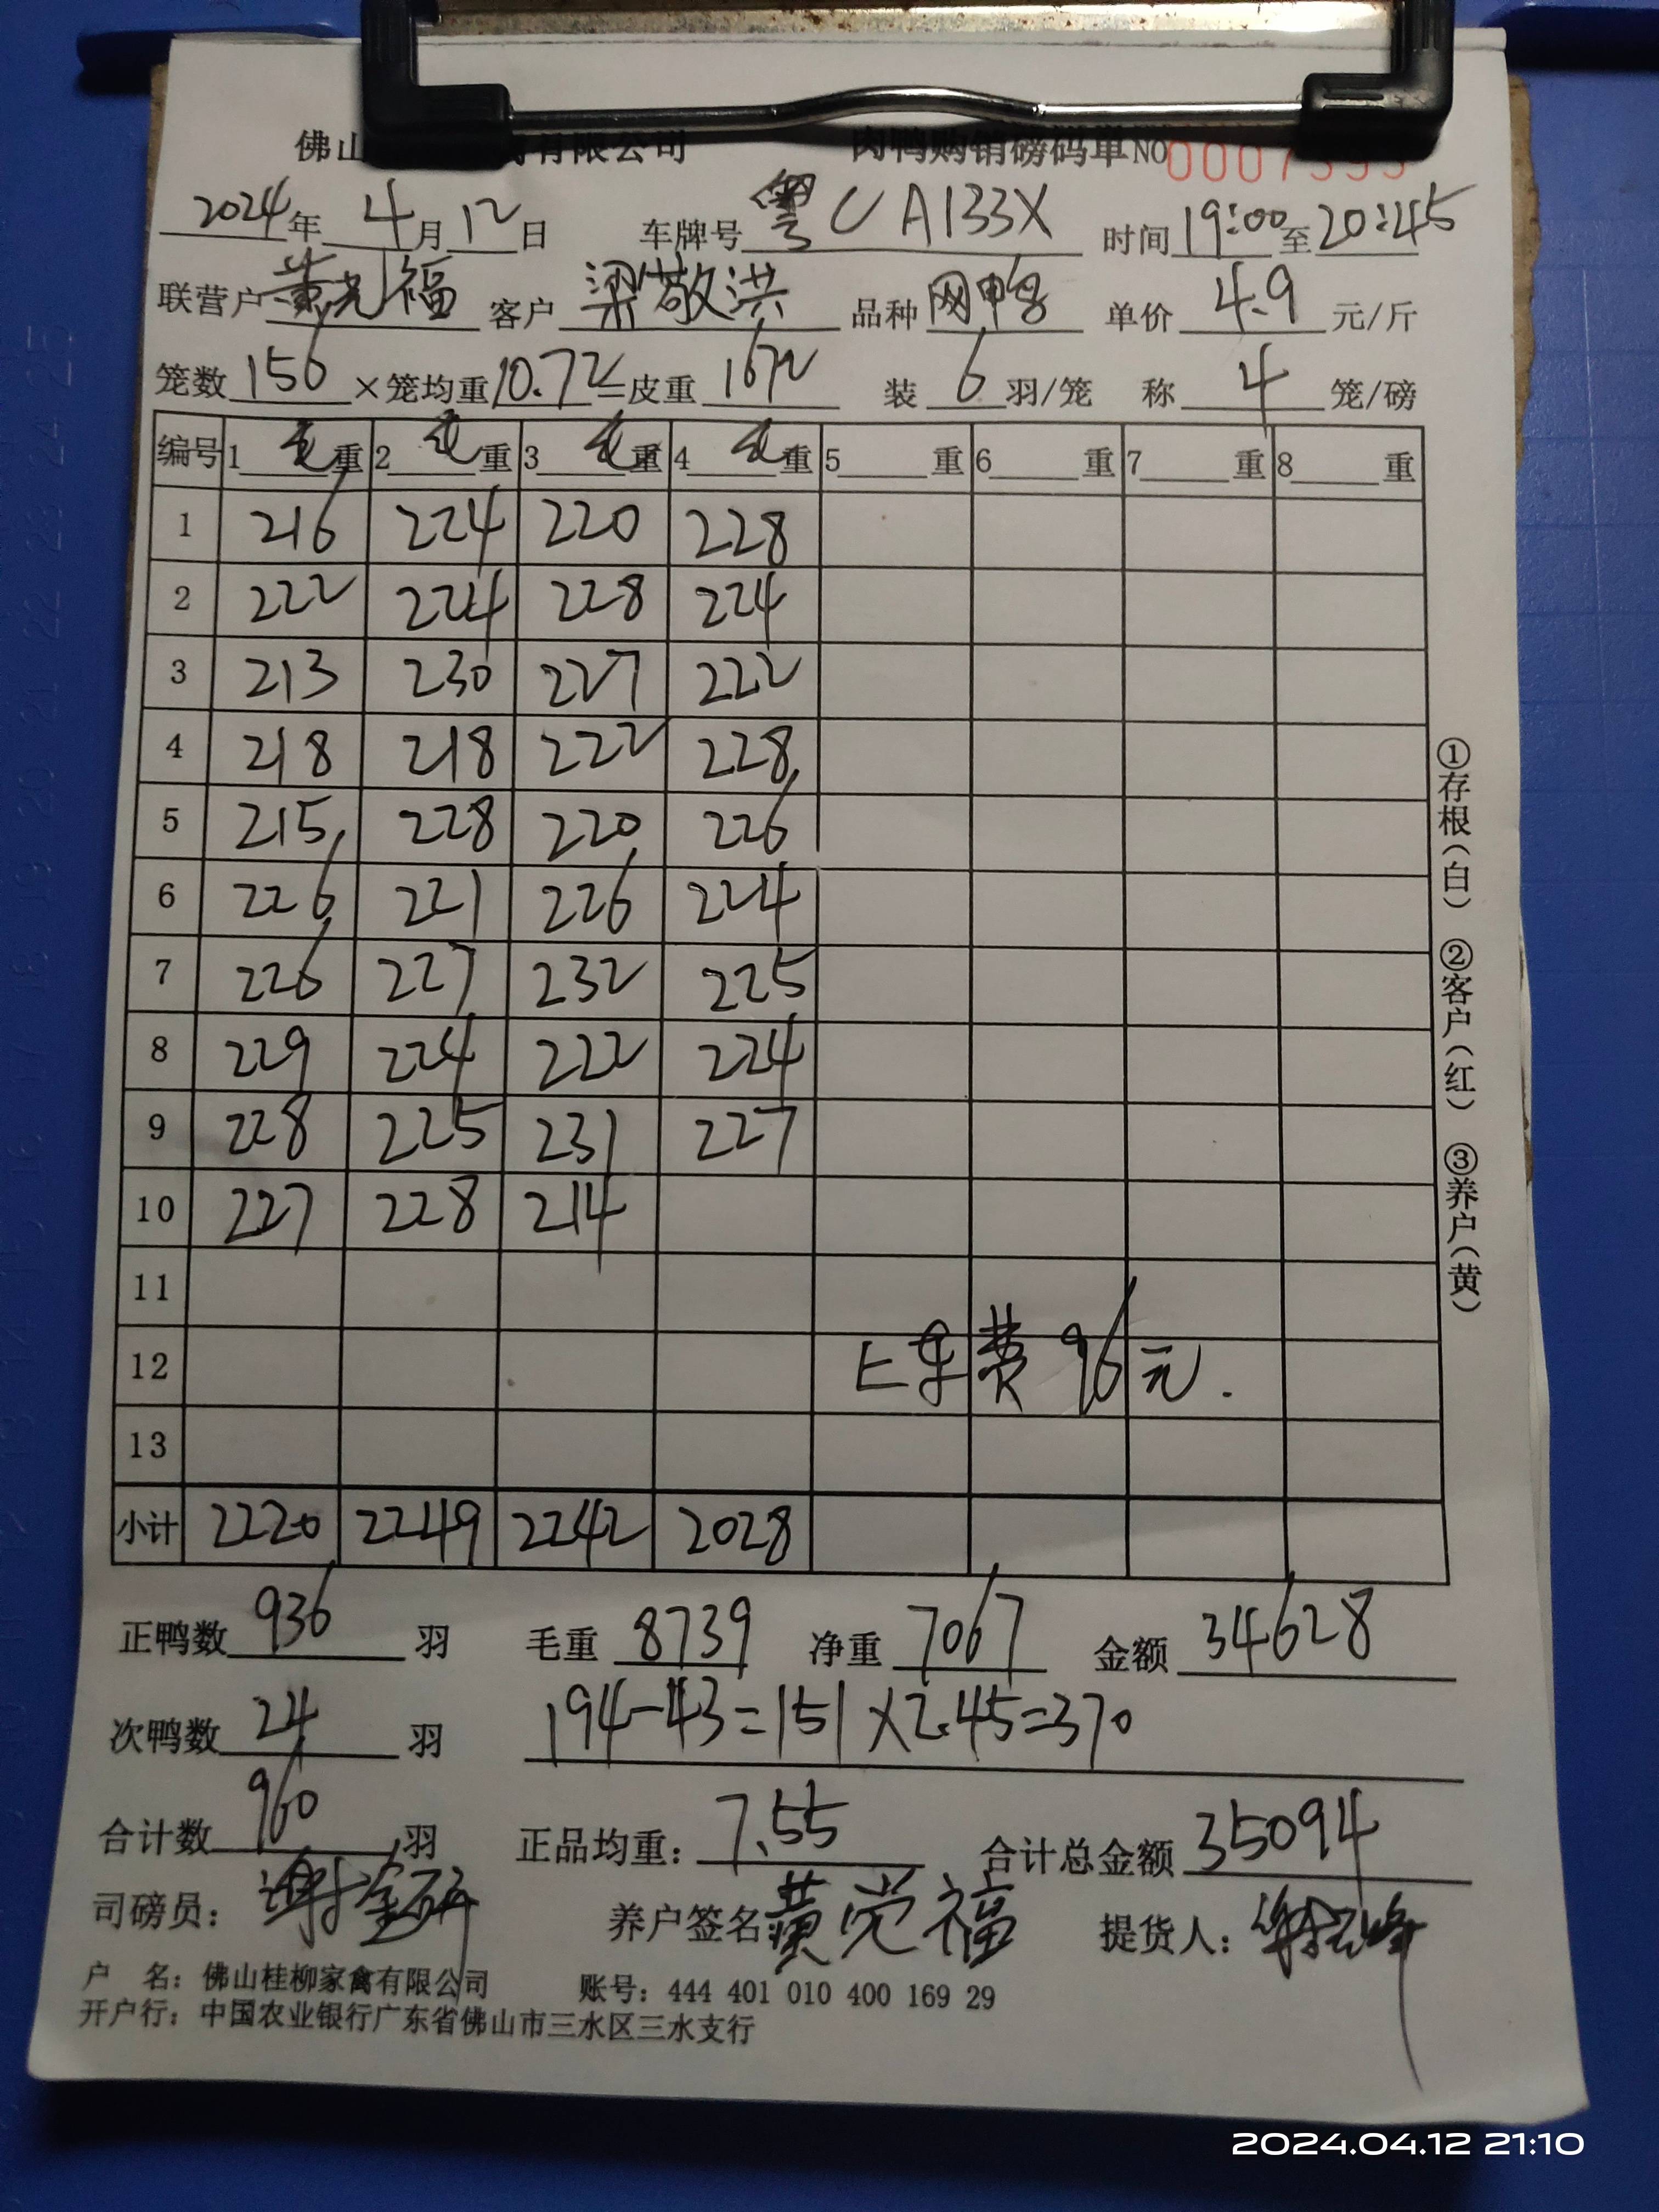 佛山 有限公司 肉鸭购销磅码单 NO 0007
2024年 4月12日 车牌号 粤C A133X 时间 19:00至20:45
联营户 黄党福 客户 梁敬洪 品种 网鸭 单价 4.9 元/斤
笼数 156 ×笼均重 10.72 =皮重 1672 装 6 羽/笼 称 4 笼/磅
编号 1 毛重 2 毛重 3 毛重 4 毛重 5 重 6 重 7 重 8 重
1 216 224 220 228
2 222 224 228 224
3 213 230 227 222
4 218 218 222 228
5 215 228 220 226
6 226 221 226 224
7 226 227 232 225
8 229 224 222 224
9 228 225 231 227
10 227 228 214
11
12 上车费 96元.
13
小计 2220 2249 2242 2028
①存根(白) ②客户(红) ③养户(黄)
正鸭数 936 羽 毛重 8739 净重 7067 金额 34628
次鸭数 24 羽 194-43=151×2.45=370
合计数 960 羽 正品均重: 7.55 合计总金额 35094
司磅员: 谢金研 养户签名 黄党福 提货人:
户 名: 佛山桂柳家禽有限公司 账号: 444 401 010 400 169 29
开户行: 中国农业银行广东省佛山市三水区三水支行
2024.04.12 21:10